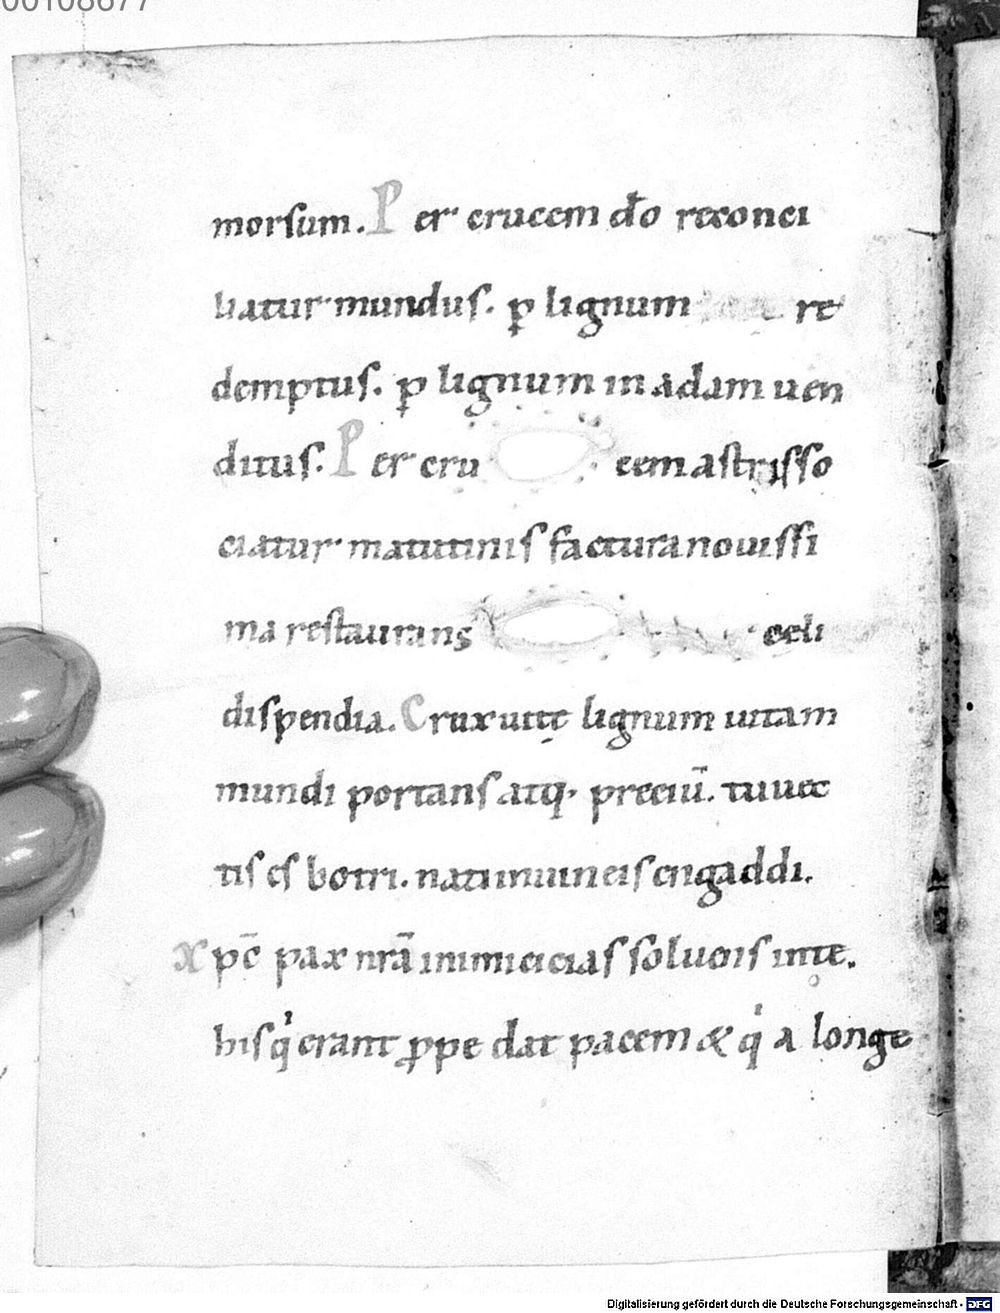 00108677
morsum. Per crucem do reconci
liatur mundus. p lignum re
demptus. p lignum in adam uen
ditus. Per cru cem astris so
ciatur matutinis factura nouissi
ma restaurans celi
dispendia. Crux uitę lignum uitam
mundi portans atq; preciū. tu uec
tis es botri. nati in uineis engaddi.
xpc̄ pax nr̄a inimicicias soluens in te.
his qi erant ꝓpe dat pacem & qi a longe
Digitalisierung gefördert durch die Deutsche Forschungsgemeinschaft - DFG